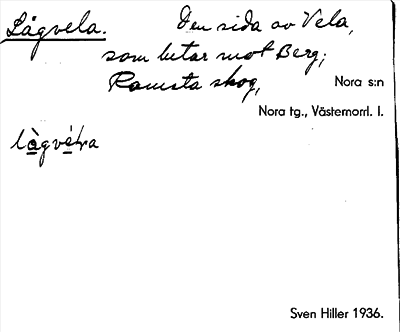 Lågvela. Den sida av Vela,
som lutar mot Berg;
Ramsta skog, Nora s:n
Nora tg., Västernorrl. l.
Sven Hiller 1936.